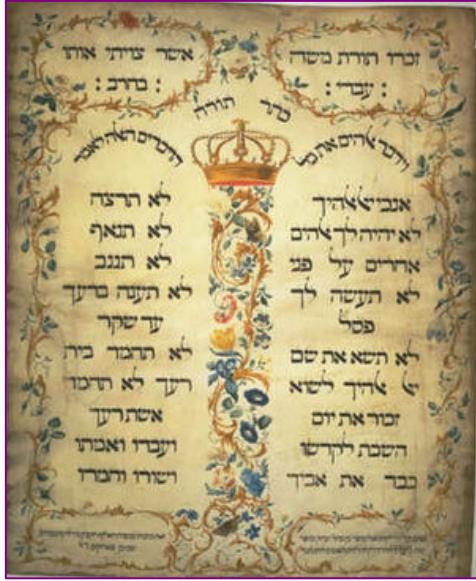 זכרו תורת משה
: עבדי :
אשר צויתי אותו
: בחרב :
כתר תורה
וידבר אלהים את כל
אנכי יי אלהיך
לא יהיה לך אלהים
אחרים על פני
לא תעשה לך
פסל
לא תשא את שם
יי אלהיך לשוא
זכור את יום
השבת לקדשו
כבד את אביך
הדברים האלה לאמר
לא תרצח
לא תנאף
לא תגנב
לא תענה ברעך
עד שקר
לא תחמד בית
רעך לא תחמד
אשת רעך
ועבדו ואמתו
ושורו וחמרו